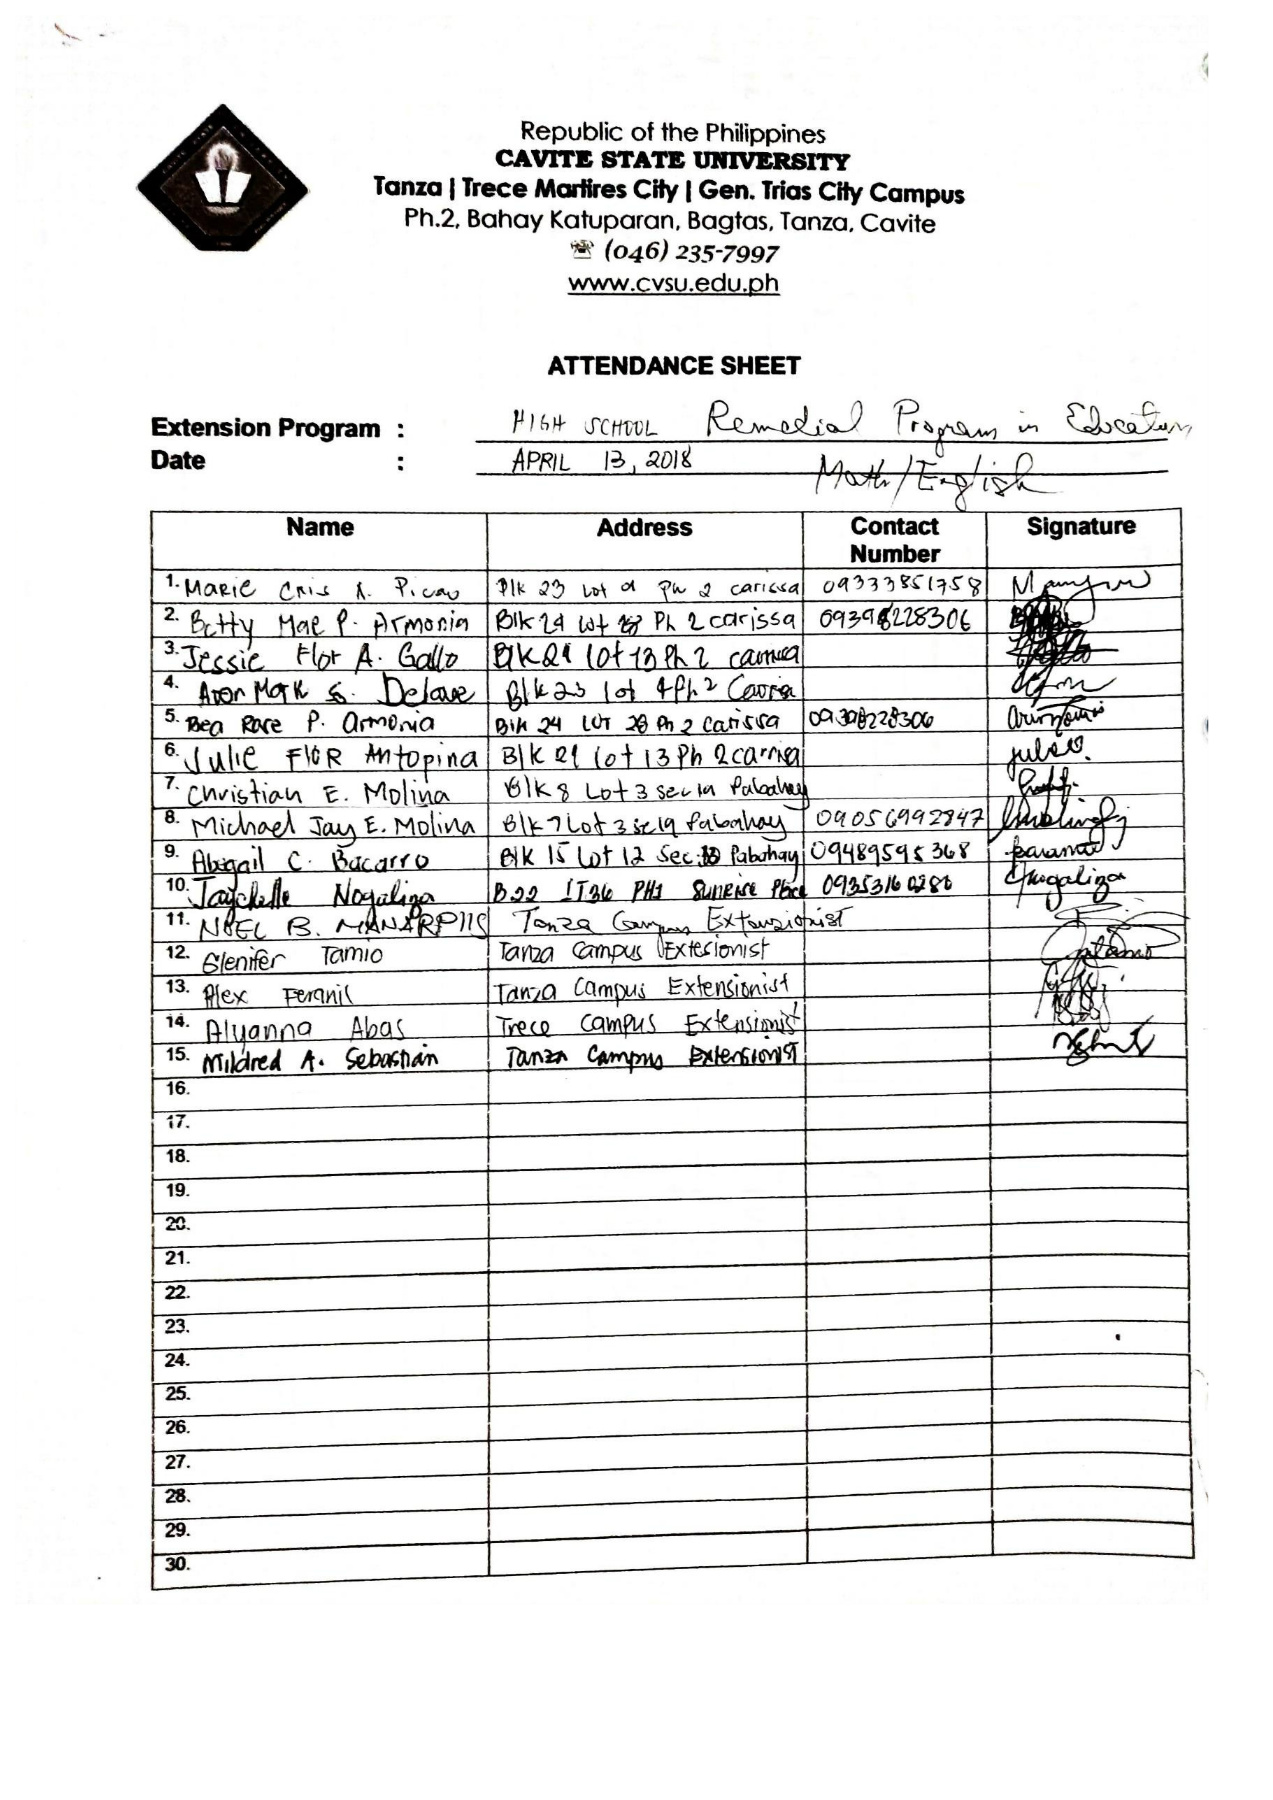 Republic of the Philippines
CAVITE STATE UNIVERSITY
Tanza | Trece Martires City | Gen. Trias City Campus
Ph.2, Bahay Katuparan, Bagtas, Tanza, Cavite
☏ (046) 235-7997
www.cvsu.edu.ph
ATTENDANCE SHEET
Extension Program : HIGH SCHOOL Remedial Program in Education
Date : APRIL 13, 2018 Math/English
Name Address Contact Number Signature
1. Marie Cris A. Picao Blk 23 Lot Ph 2 carissa 09333851758
2. Betty Mae P. Armonia Blk 24 Lot 28 Ph 2 carissa 09398228306
3. Jessie Flor A. Gallo Blk 21 lot 13 Ph 2
4. Mark Delave Blk 23 lot 4 Ph 2
5. Bea Rose P. Armonia Blk 24 Lot 28 Ph 2 Carissa 09398228306
6. Julie FlOR Antopina Blk 21 lot 13 Ph 2
7. Christian E. Molina Blk 8 Lot 3 sec 19 Pabahay
8. Michael Jay E. Molina Blk 7 Lot 3 se 19 Pabahay 09056992847
9. Abigail C. Bacarro Blk 15 Lot 12 Sec. 18 Pabahay 09489595368
10. Jaychelle Nogaliza B22 LT36 PH1 Sunrise Place 09353160286 Nogaliza
11. NOEL B. MANARPIIS Tanza Campus Extensionist
12. Glenifer Tamio Tanza Campus Extesionist
13. Alex Feranil Tanza Campus Extensionist
14. Alyanna Abas Trece Campus Extensionist
15. Mildred A. Sebastian Tanza Campus Extensionist
16.
17.
18.
19.
20.
21.
22.
23.
24.
25.
26.
27.
28.
29.
30.